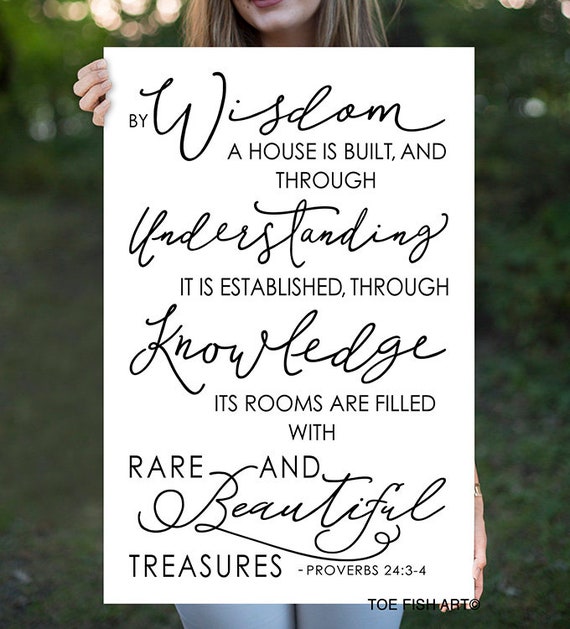 BY Wisdom
A HOUSE IS BUILT, AND
THROUGH
Understanding
IT IS ESTABLISHED, THROUGH
Knowledge
ITS ROOMS ARE FILLED
WITH
RARE AND
Beautiful
TREASURES - PROVERBS 24:3-4
TOE FISH ART©